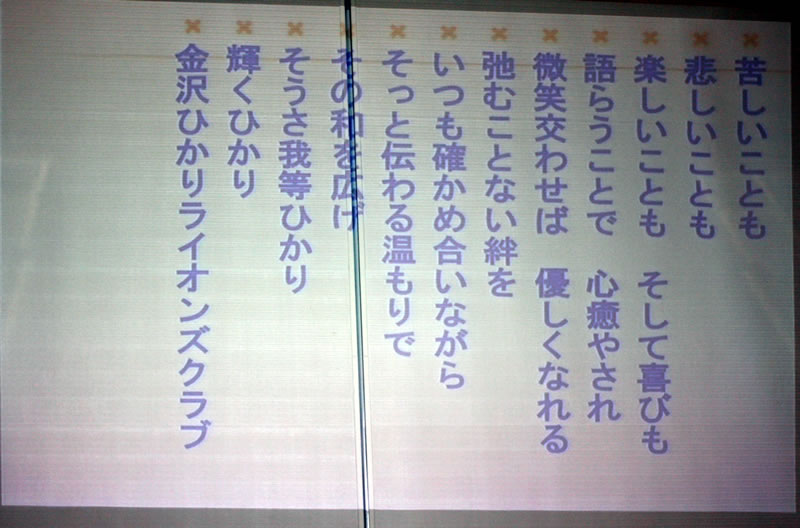 苦しいことも
悲しいことも
楽しいことも　そして喜びも
語らうことで　心癒やされ
微笑交わせば　優しくなれる
弛むことない絆を
いつも確かめ合いながら
そっと伝わる温もりで
その和を広げ
そうさ我等ひかり
輝くひかり
金沢ひかりライオンズクラブ